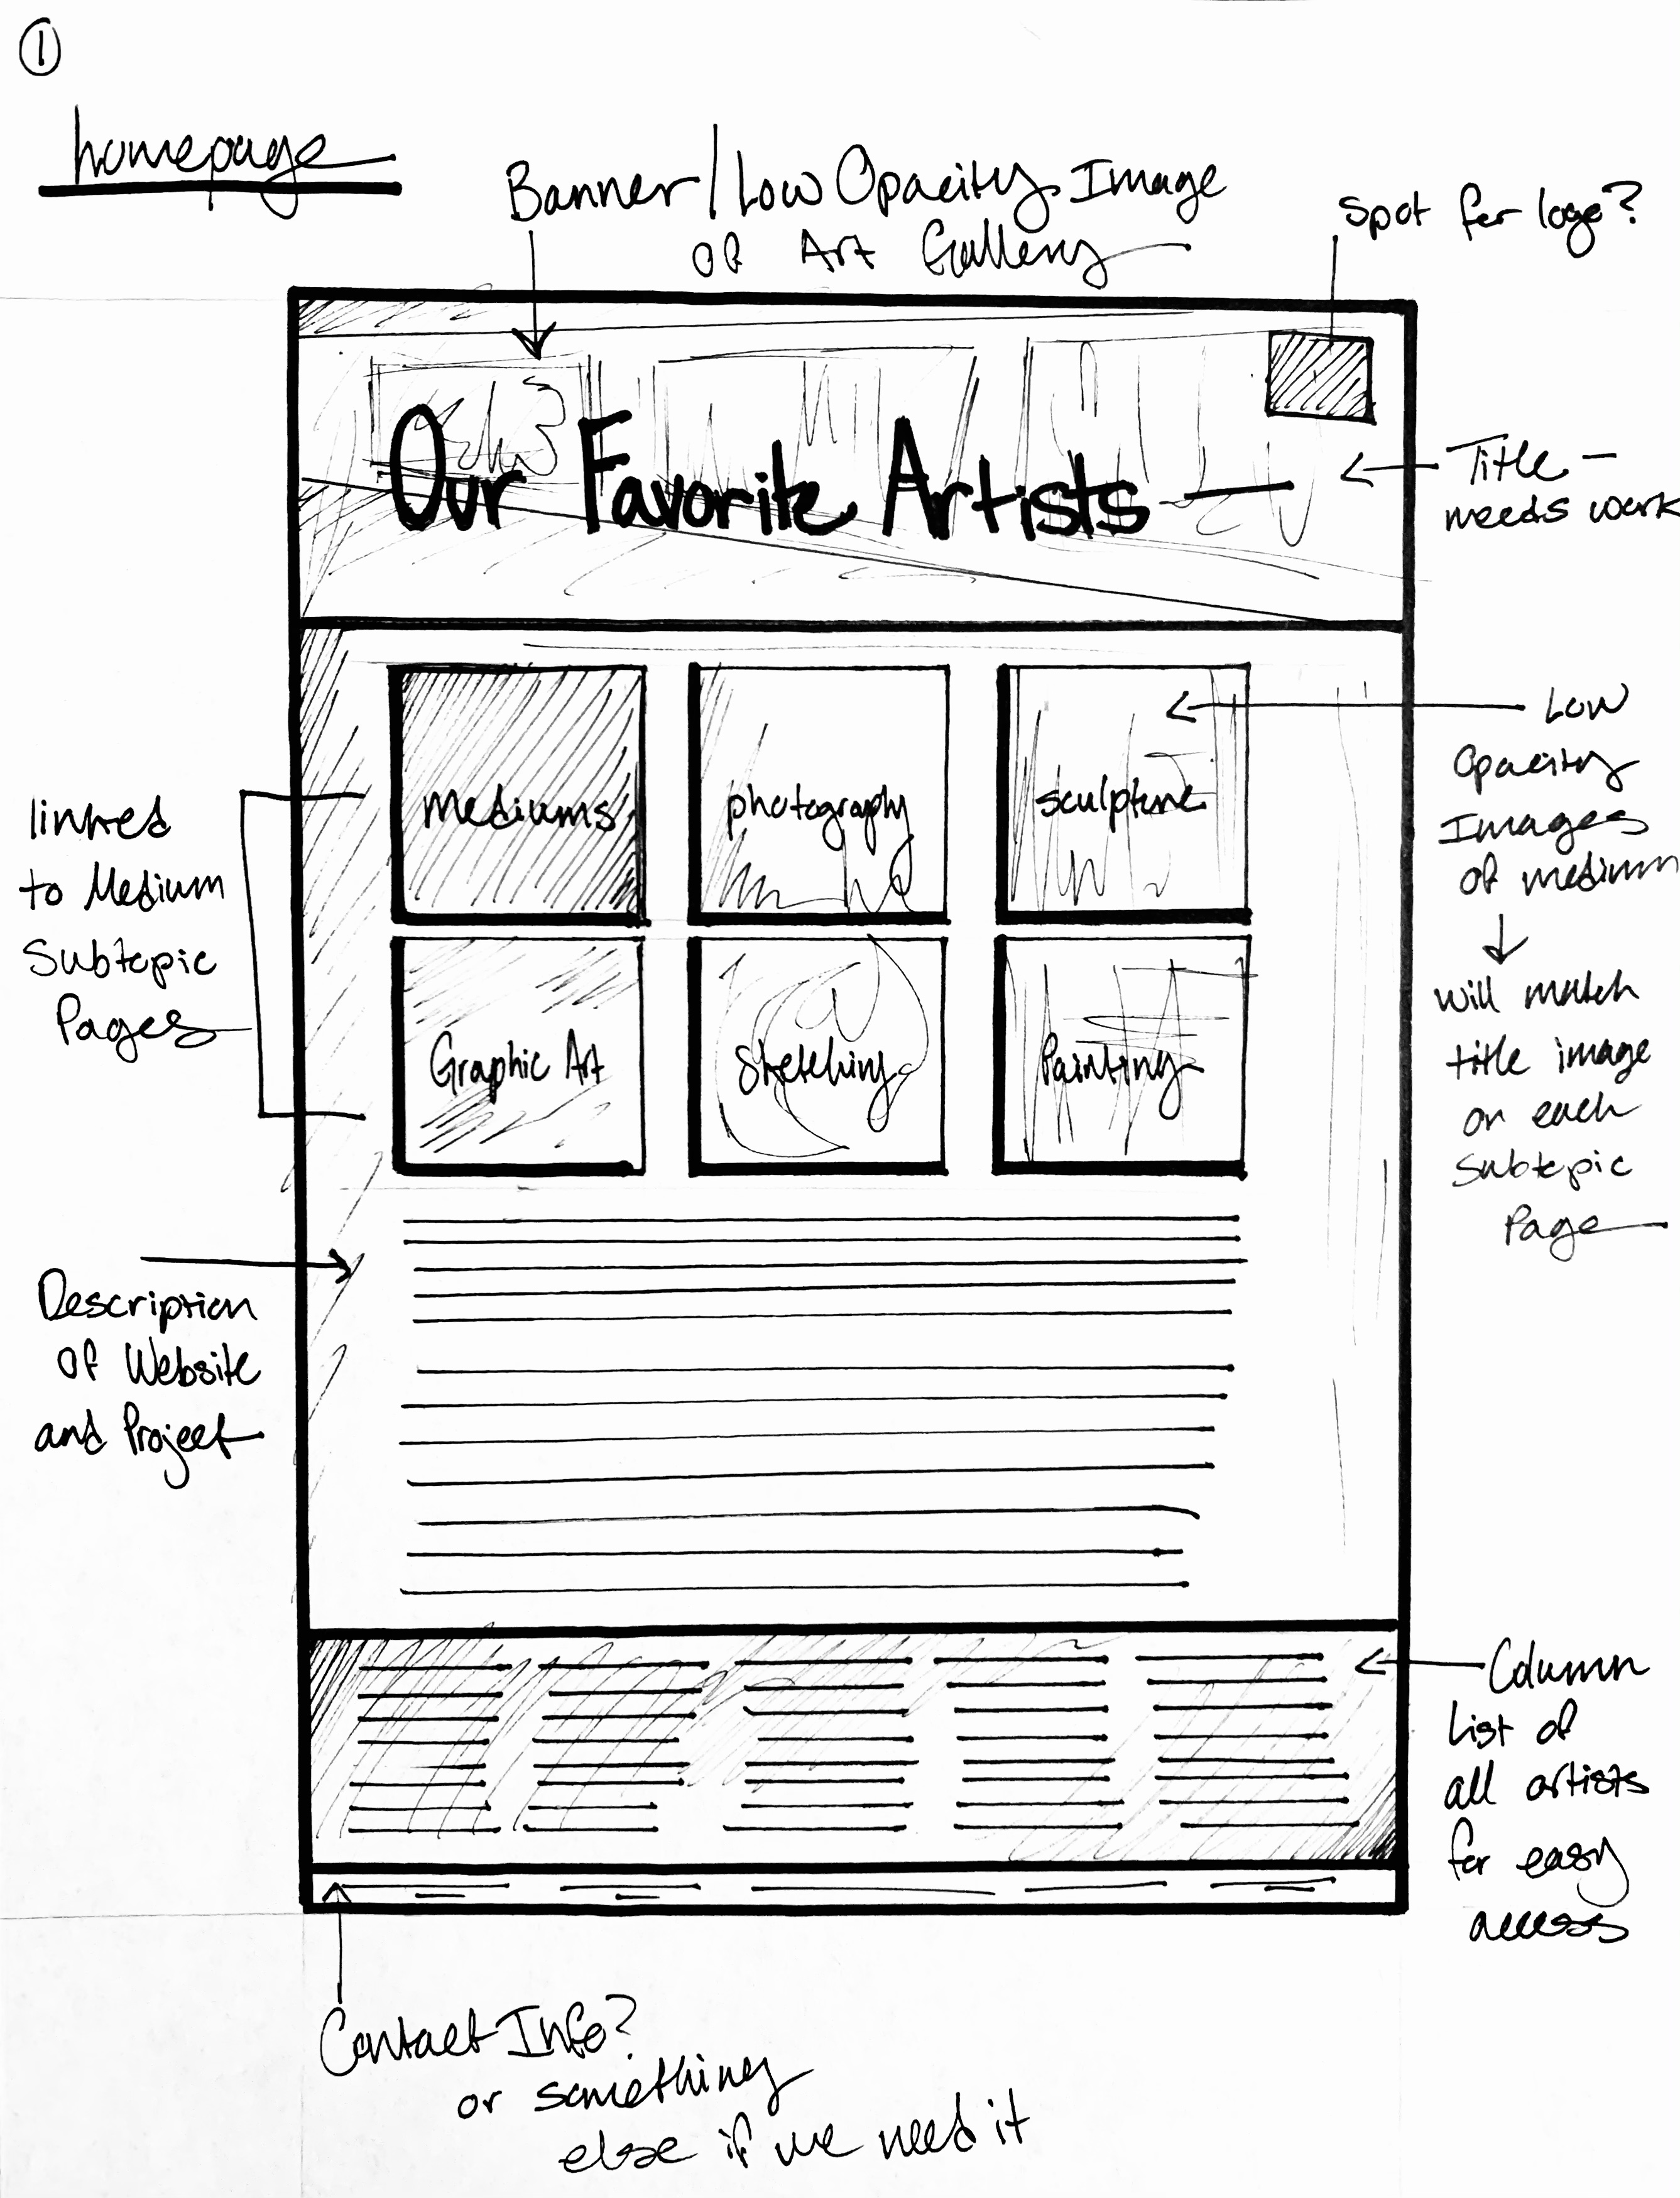 1
homepage
Banner/Low Opacity Image
of Art Gallery
spot for logo?
Our Favorite Artists
Title -
needs work
mediums
photography
sculpture
Graphic Art
Sketching
Painting
linked
to Medium
Subtopic
Pages
Low
Opacity
Images
of medium
will match
title image
on each
Subtopic
Page
Description
of Website
and Project
Column
List of
all artists
for easy
access
Contact Info?
or something
else if we need it